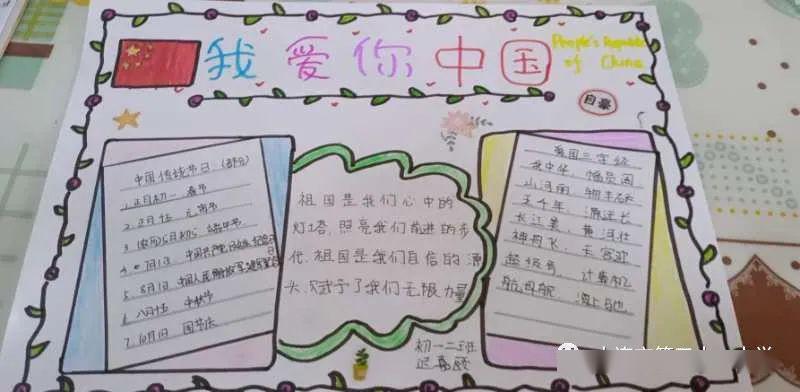 我爱你中国
People's Republic
of China
中国传统节日：(部分)
1.正月初一 春节
2.正月十五 元宵节
3.(农历)5月初五 端午节
4.7月1日 中国共产党
5.8月1日 中国人民解放军建军
6.八月十五 中秋节
7.10月1日 国节庆
祖国是我们心中的
灯塔，照亮我们前进的步
伐。祖国是我们自信的源
头，赋予了我们无限力量
爱国三字经
我中华，幅员阔
山河丽，物丰
五千年，源远长
长江美，黄河壮
神舟飞，天宫迎
超级号，计算机
航母舰，海上
初一二班